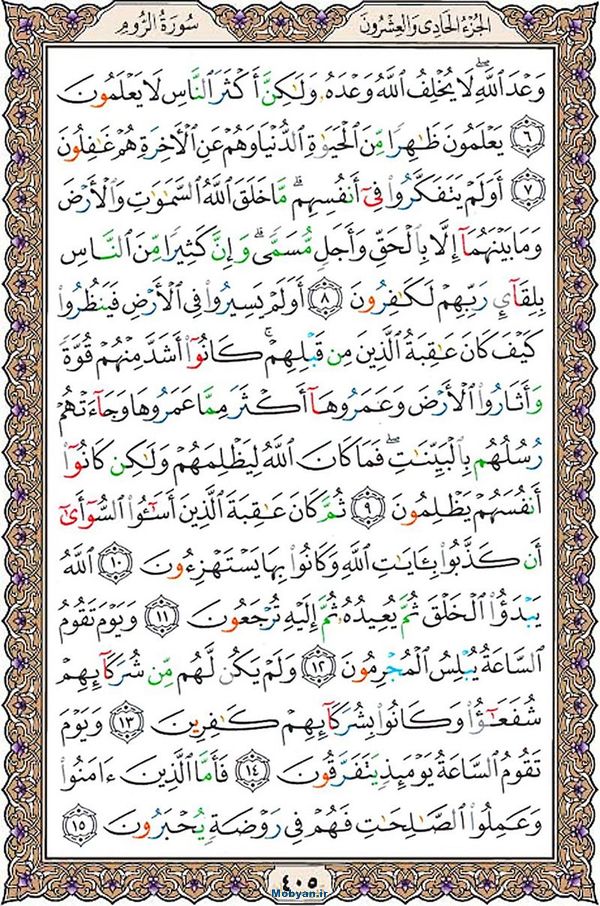 سُورَةُ الرُّومِ الجُزْءُ الحَادِى وَالعِشْرُونَ
وَعْدَ ٱللَّهِ ۖ لَا يُخْلِفُ ٱللَّهُ وَعْدَهُۥ وَلَٰكِنَّ أَكْثَرَ ٱلنَّاسِ لَا يَعْلَمُونَ
٦ يَعْلَمُونَ ظَٰهِرًا مِّنَ ٱلْحَيَوٰةِ ٱلدُّنْيَا وَهُمْ عَنِ ٱلْأَخِرَةِ هُمْ غَٰفِلُونَ
٧ أَوَلَمْ يَتَفَكَّرُوا۟ فِىٓ أَنفُسِهِم ۗ مَّا خَلَقَ ٱللَّهُ ٱلسَّمَٰوَٰتِ وَٱلْأَرْضَ
وَمَا بَيْنَهُمَآ إِلَّا بِٱلْحَقِّ وَأَجَلٍ مُّسَمًّى ۗ وَإِنَّ كَثِيرًا مِّنَ ٱلنَّاسِ
بِلِقَآئِ رَبِّهِمْ لَكَٰفِرُونَ ٨ أَوَلَمْ يَسِيرُوا۟ فِى ٱلْأَرْضِ فَيَنظُرُوا۟
كَيْفَ كَانَ عَٰقِبَةُ ٱلَّذِينَ مِن قَبْلِهِمْ ۚ كَانُوٓا۟ أَشَدَّ مِنْهُمْ قُوَّةً
وَأَثَارُوا۟ ٱلْأَرْضَ وَعَمَرُوهَآ أَكْثَرَ مِمَّا عَمَرُوهَا وَجَآءَتْهُمْ
رُسُلُهُم بِٱلْبَيِّنَٰتِ ۖ فَمَا كَانَ ٱللَّهُ لِيَظْلِمَهُمْ وَلَٰكِن كَانُوٓا۟
أَنفُسَهُمْ يَظْلِمُونَ ٩ ثُمَّ كَانَ عَٰقِبَةَ ٱلَّذِينَ أَسَٰٓـُٔوا۟ ٱلسُّوٓأَىٰٓ
أَن كَذَّبُوا۟ بِـَٔايَٰتِ ٱللَّهِ وَكَانُوا۟ بِهَا يَسْتَهْزِءُونَ ١٠ ٱللَّهُ
يَبْدَؤُا۟ ٱلْخَلْقَ ثُمَّ يُعِيدُهُۥ ثُمَّ إِلَيْهِ تُرْجَعُونَ ١١ وَيَوْمَ تَقُومُ
ٱلسَّاعَةُ يُبْلِسُ ٱلْمُجْرِمُونَ ١٢ وَلَمْ يَكُن لَّهُم مِّن شُرَكَآئِهِمْ
شُفَعَٰٓؤُا۟ وَكَانُوا۟ بِشُرَكَآئِهِمْ كَٰفِرِينَ ١٣ وَيَوْمَ
تَقُومُ ٱلسَّاعَةُ يَوْمَئِذٍ يَتَفَرَّقُونَ ١٤ فَأَمَّا ٱلَّذِينَ ءَامَنُوا۟
وَعَمِلُوا۟ ٱلصَّٰلِحَٰتِ فَهُمْ فِى رَوْضَةٍ يُحْبَرُونَ ١٥
٤٠٥
Mobyan.ir